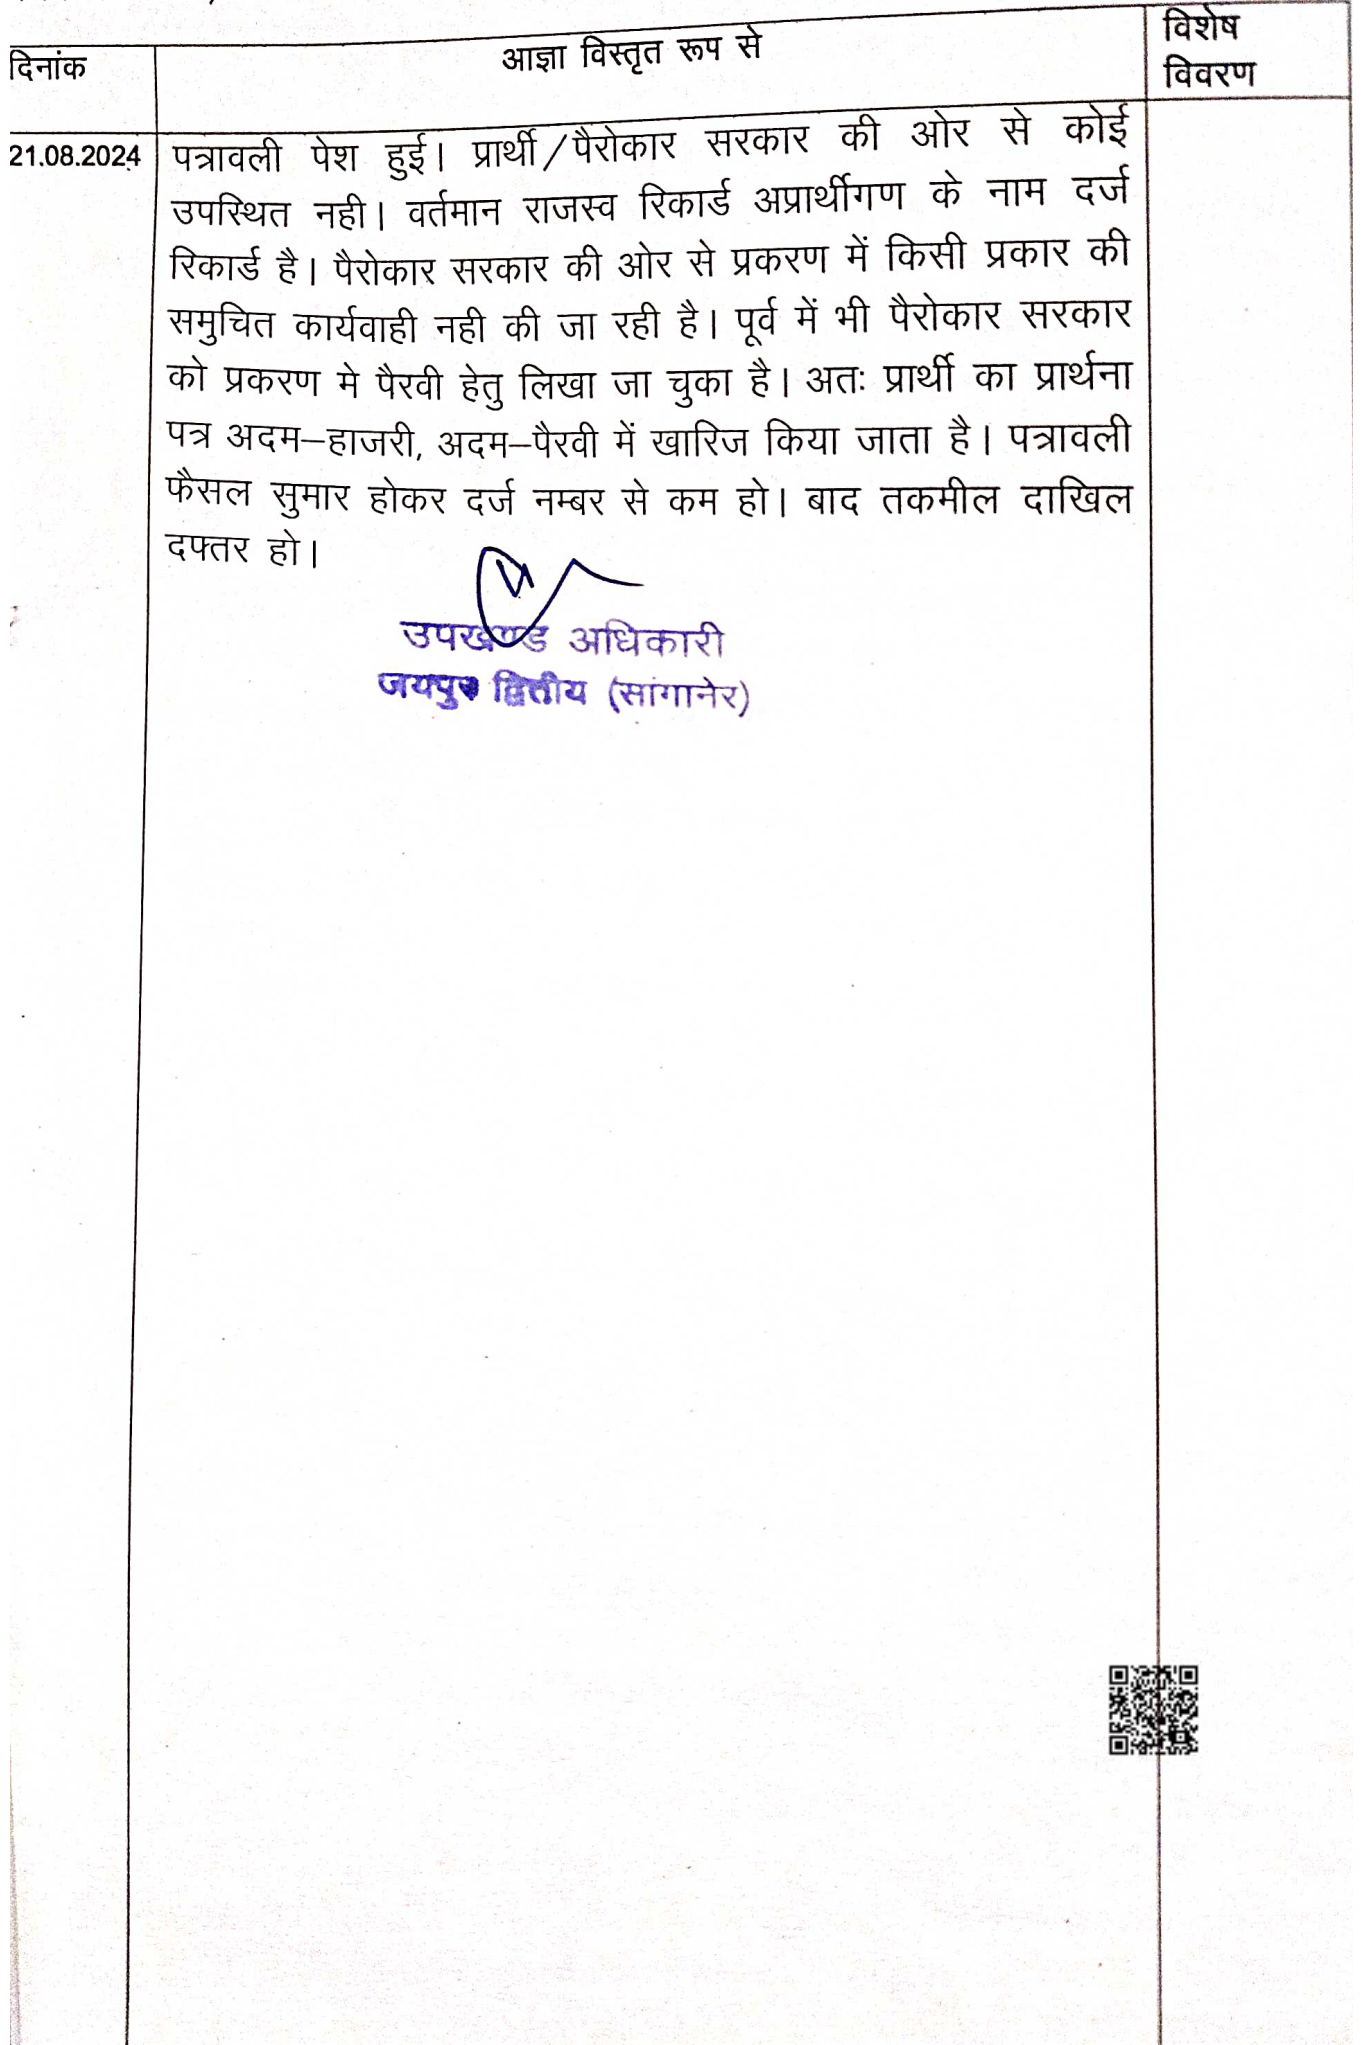 दिनांक
आज्ञा विस्तृत रूप से
विशेष
विवरण
21.08.2024
पत्रावली पेश हुई। प्रार्थी/पैरोकार सरकार की ओर से कोई
उपस्थित नही। वर्तमान राजस्व रिकार्ड अप्रार्थीगण के नाम दर्ज
रिकार्ड है। पैरोकार सरकार की ओर से प्रकरण में किसी प्रकार की
समुचित कार्यवाही नही की जा रही है। पूर्व में भी पैरोकार सरकार
को प्रकरण मे पैरवी हेतु लिखा जा चुका है। अतः प्रार्थी का प्रार्थना
पत्र अदम–हाजरी, अदम–पैरवी में खारिज किया जाता है। पत्रावली
फैसल सुमार होकर दर्ज नम्बर से कम हो। बाद तकमील दाखिल
दफ्तर हो।
उपखण्ड अधिकारी
जयपुर द्वितीय (सांगानेर)